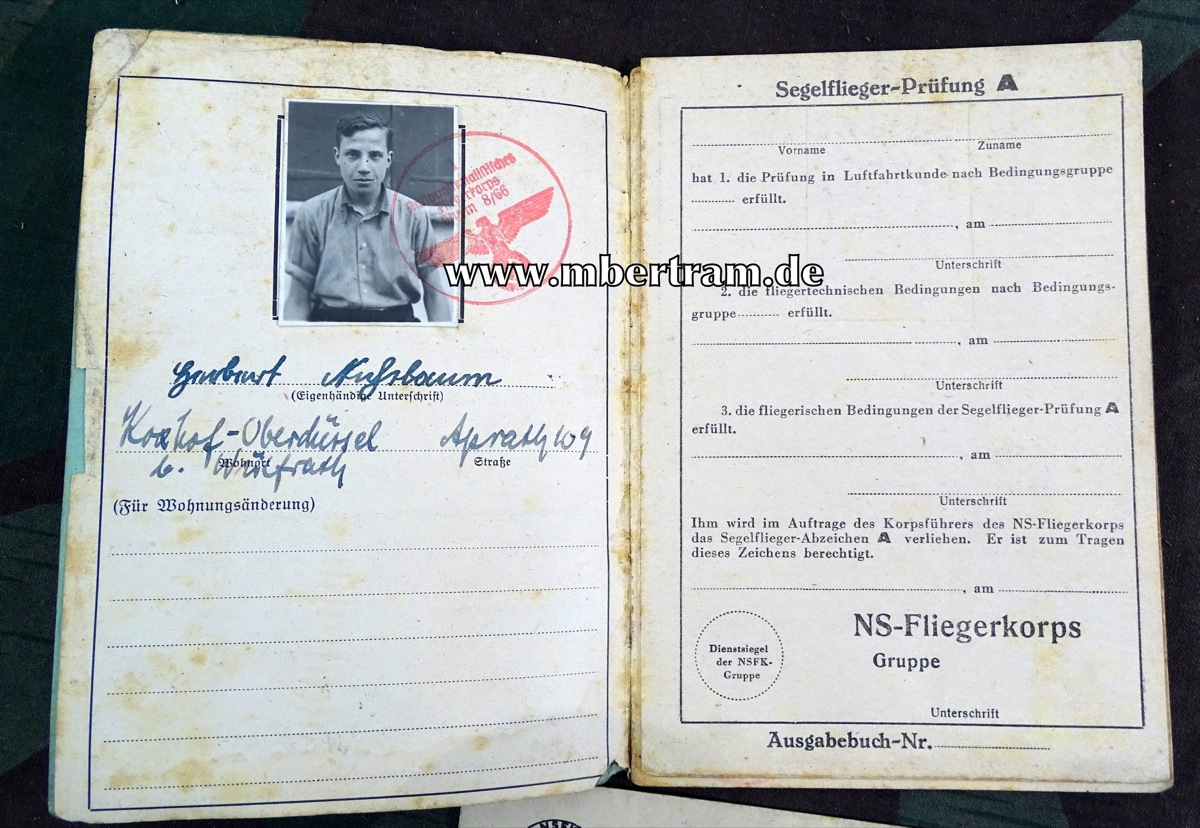 Nationalsozialistisches
Fliegerkorps
Sturm 8/66
Herbert Nußbaum
(Eigenhändige Unterschrift)
Koxhof-Oberdüssel Aprath 109
Wohnort Straße
b. Wülfrath
(Für Wohnungsänderung)
www.mbertram.de
Segelflieger-Prüfung A
Vorname Zuname
hat 1. die Prüfung in Luftfahrtkunde nach Bedingungsgruppe
erfüllt.
, am
Unterschrift
2. die fliegertechnischen Bedingungen nach Bedingungs-
gruppe erfüllt.
, am
Unterschrift
3. die fliegerischen Bedingungen der Segelflieger-Prüfung A
erfüllt.
, am
Unterschrift
Ihm wird im Auftrage des Korpsführers des NS-Fliegerkorps
das Segelflieger-Abzeichen A verliehen. Er ist zum Tragen
dieses Zeichens berechtigt.
, am
NS-Fliegerkorps
Gruppe
Dienstsiegel
der NSFK-
Gruppe
Unterschrift
Ausgabebuch-Nr.
NSFK